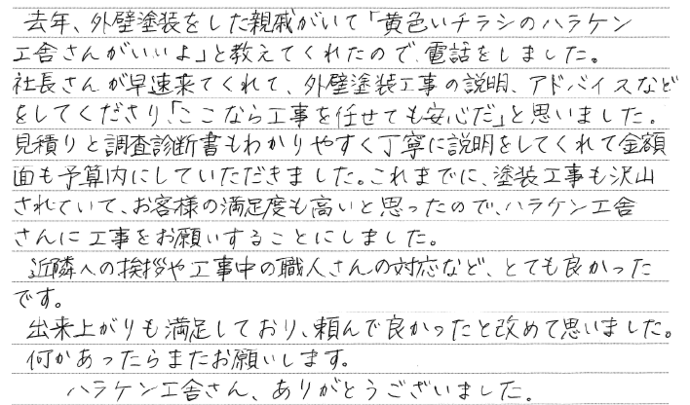 去年、外壁塗装をした親戚がいて「黄色いチラシのハラケン
工舎さんがいいよ」と教えてくれたので、電話をしました。
社長さんが早速来てくれて、外壁塗装工事の説明、アドバイスなど
をしてくださり、「ここなら工事を任せても安心だ」と思いました。
見積りと調査診断書もわかりやすく丁寧に説明をしてくれて金額
面も予算内にしていただきました。これまでに、塗装工事も沢山
されていて、お客様の満足度も高いと思ったので、ハラケン工舎
さんに工事をお願いすることにしました。
近隣への挨拶や工事中の職人さんの対応など、とても良かった
です。
出来上がりも満足しており、頼んで良かったと改めて思いました。
何かあったらまたお願いします。
ハラケン工舎さん、ありがとうございました。